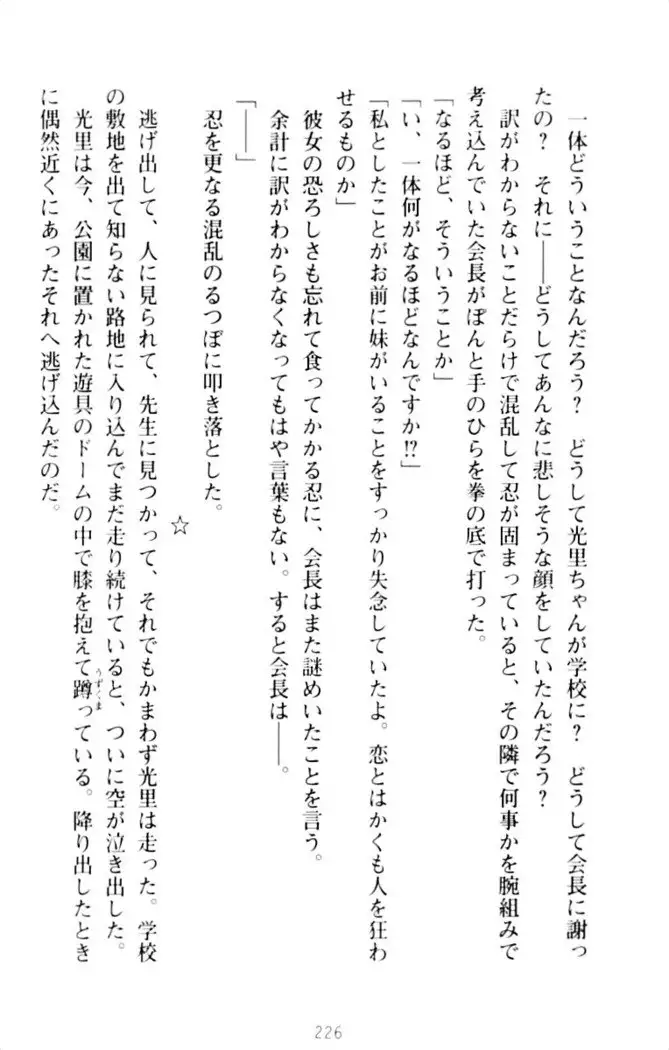 一体どういうことなんだろう？　どうして光里ちゃんが学校に？　どうして会長に謝っ
たの？　それに――どうしてあんなに悲しそうな顔をしていたんだろう？
訳がわからないことだらけで混乱して忍が固まっていると、その隣で何事かを腕組みで
考え込んでいた会長がぽんと手のひらを拳の底で打った。
「なるほど、そういうことか」
「い、一体何がなるほどなんですか!?」
「私としたことがお前に妹がいることをすっかり失念していたよ。恋とはかくも人を狂わ
せるものか」
彼女の恐ろしさも忘れて食ってかかる忍に、会長はまた謎めいたことを言う。
余計に訳がわからなくなってもはや言葉もない。すると会長は――。
「――」
忍を更なる混乱のるつぼに叩き落とした。
☆
逃げ出して、人に見られて、先生に見つかって、それでもかまわず光里は走った。学校
の敷地を出て知らない路地に入り込んでまだ走り続けていると、ついに空が泣き出した。
光里は今、公園に置かれた遊具のドームの中で膝を抱えて蹲っている。降り出したとき
うずくま
に偶然近くにあったそれへ逃げ込んだのだ。
226